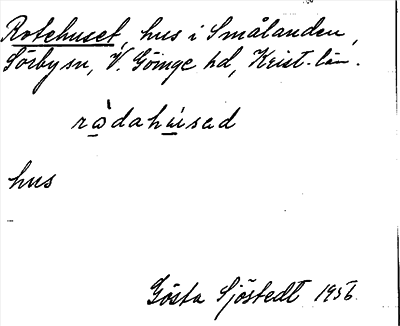 Rotehuset, hus i Smålanden,
Sörby sn, V. Göinge hd, Krist. län.
ràdahúsad
hus
Gösta Sjöstedt 1956.